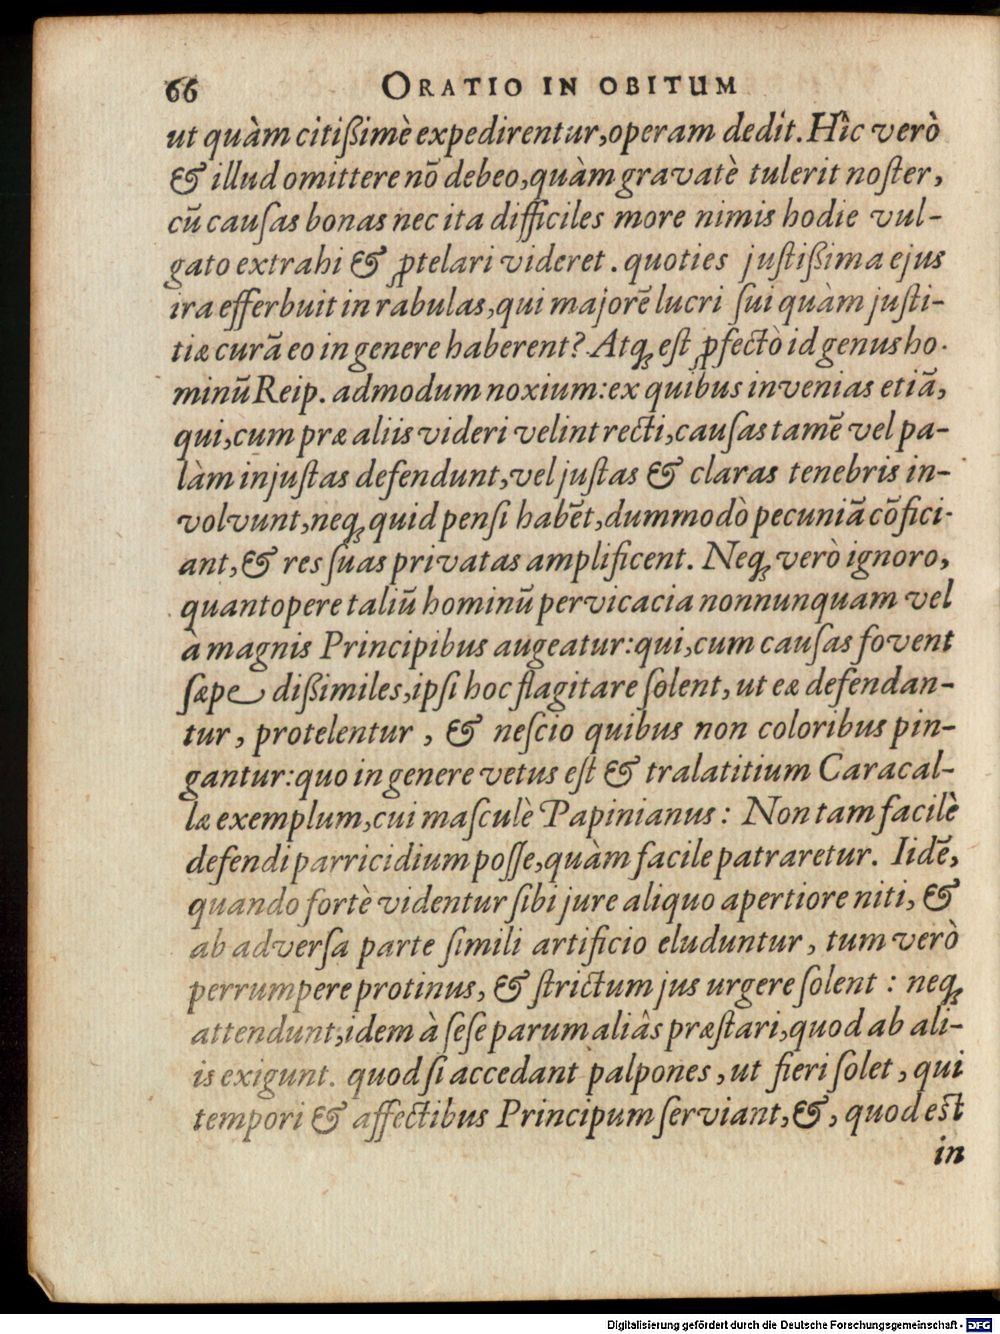 66 ORATIO IN OBITUM
ut quàm citißimè expedirentur, operam dedit. Hîc verò
& illud omittere nō debeo, quàm gravatè tulerit noſter,
cū cauſas bonas nec ita difficiles more nimis hodie vul-
gato extrahi & ꝓtelari videret. quoties juſtißima ejus
ira efferbuit in rabulas, qui majorē lucri ſui quàm juſti-
tiæ curā eo in genere haberent? Atq́; eſt ꝓfectò id genus ho-
minū Reip. admodum noxium: ex quibus invenias etiā,
qui, cum præ aliis videri velint recti, cauſas tamē vel pa-
làm injuſtas defendunt, vel juſtas & claras tenebris in-
volvunt, neq; quid penſi habēt, dummodò pecuniā cōfici-
ant, & res ſuas privatas amplificent. Neq; verò ignoro,
quantopere taliū hominū pervicacia nonnunquam vel
à magnis Principibus augeatur: qui, cum cauſas fovent
ſæpe dißimiles, ipſi hoc flagitare ſolent, ut eæ defendan-
tur, protelentur, & neſcio quibus non coloribus pin-
gantur: quo in genere vetus eſt & tralatitium Caracal-
læ exemplum, cui maſculè Papinianus: Non tam facilè
defendi parricidium poſſe, quàm facile patraretur. Iidē,
quando fortè videntur ſibi jure aliquo apertiore niti, &
ab adverſa parte ſimili artificio eluduntur, tum verò
perrumpere protinus, & ſtrictum jus urgere ſolent: neq;
attendunt, idem à ſeſe parum aliâs præſtari, quod ab ali-
is exigunt. quod ſi accedant palpones, ut fieri ſolet, qui
tempori & affectibus Principum ſerviant, &, quod eſt
in
Digitalisierung gefördert durch die Deutsche Forschungsgemeinschaft - DFG